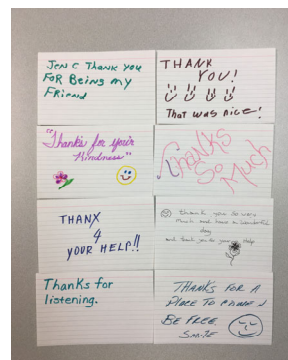 Jen C Thank you
For Being my
Friend
THANK
YOU!
That was nice!
"Thanks for your
Kindness"
Thanks
So
Much
THANX
4
YOUR HELP!!
thank you so very
much and have a wonderful
day
and thank you for your help
Thanks for
listening.
THANKS FOR A
PLACE TO
BE FREE.